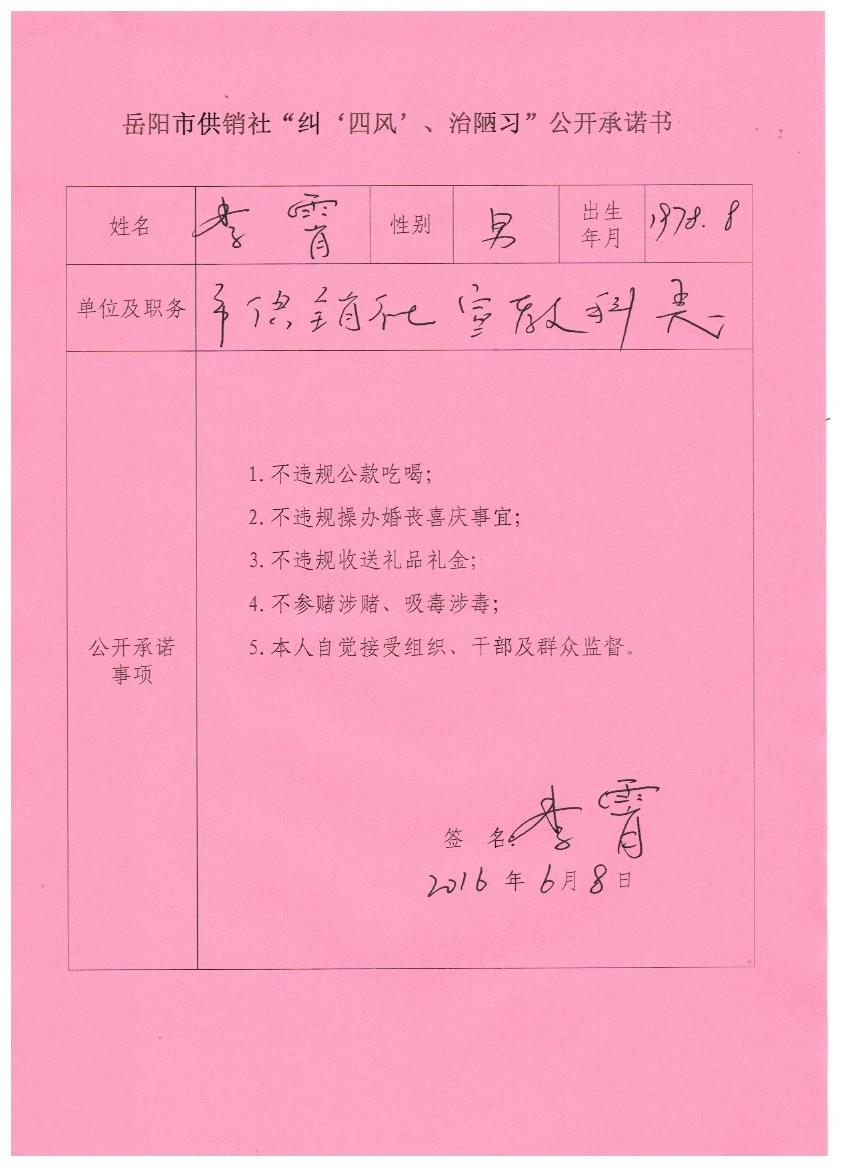 岳阳市供销社“纠‘四风’、治陋习”公开承诺书
姓名 李霄 性别 男 出生年月 1978.8
单位及职务 市供销社宣教科员
公开承诺事项
1.不违规公款吃喝;
2.不违规操办婚丧喜庆事宜;
3.不违规收送礼品礼金;
4.不参赌涉赌、吸毒涉毒;
5.本人自觉接受组织、干部及群众监督。
签 名:李霄
2016年6月8日